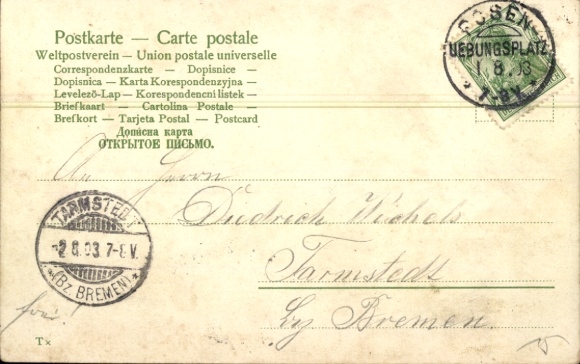 Postkarte — Carte postale
Weltpostverein — Union postale universelle
Correspondenzkarte — Dopisnice —
Dopisnica — Karta Korespondenzyjna —
Levelező-Lap — Korespondencni listek —
Briefkaart — Cartolina Postale —
Brefkort — Tarjeta Postal — Postcard
Дописна карта
ОТКРЫТОЕ ПИСЬМО.
POSEN
UEBUNGSPLATZ
1 8. 03
* 7-8V. *
An Herrn
Diedrich Wichels
Tarmstedt
by Bremen.
TARMSTEDT
-2 8. 03. 7-8 V.
* (Bz BREMEN) *
frei!
T×